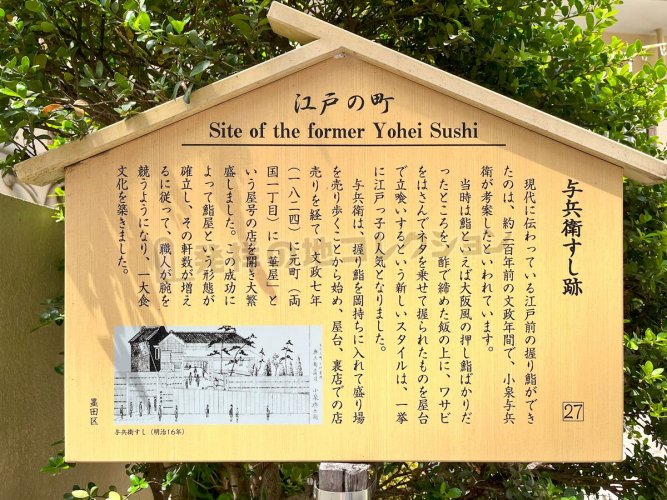 江戸の町
Site of the former Yohei Sushi
与兵衛すし跡
現代に伝わっている江戸前の握り鮨ができ
たのは、約二百年前の文政年間で、小泉与兵
衛が考案したといわれています。
当時は鮨といえば大阪風の押し鮨ばかりだ
ったところを、酢で締めた飯の上に、ワサビ
をはさんでネタを乗せて握られたものを屋台
で立喰いするという新しいスタイルは、一挙
に江戸っ子の人気となりました。
与兵衛は、握り鮨を岡持ちに入れて盛り場
を売り歩くことから始め、屋台、裏店での店
売りを経て、文政七年
(一八二四)に元町(両
国一丁目)に「華屋」と
いう屋号の店を開き大繁
盛しました。この成功に
よって鮨屋という形態が
確立し、その軒数が増え
るに従って、職人が腕を
競うようになり、一大食
文化を築きました。
27
小泉与兵衛
与兵衛すし(明治16年)
墨田区